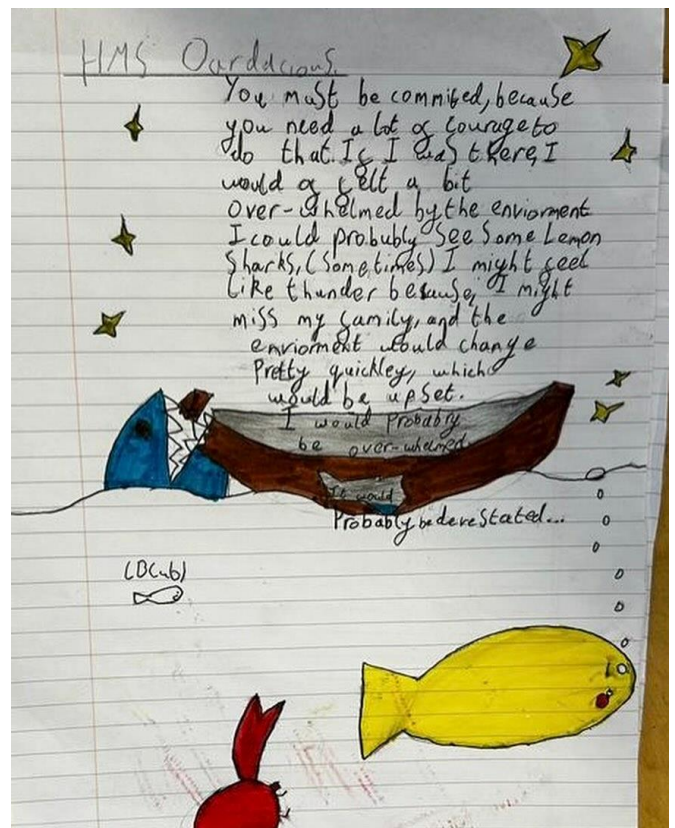 HMS Ourddcious.
You must be commited, because
you need a lot of courage to
do that. If I was there, I
would of felt a bit
over-whelmed by the enviorment
I could probubly see Some Lemon
Sharks, (Sometimes) I might feel
like thunder because, I might
miss my family, and the
enviorment would change
Pretty quickley, which
would be upset.
I would Probably
be over-whelmed
It would
Probably be deveStated...
(BCub)